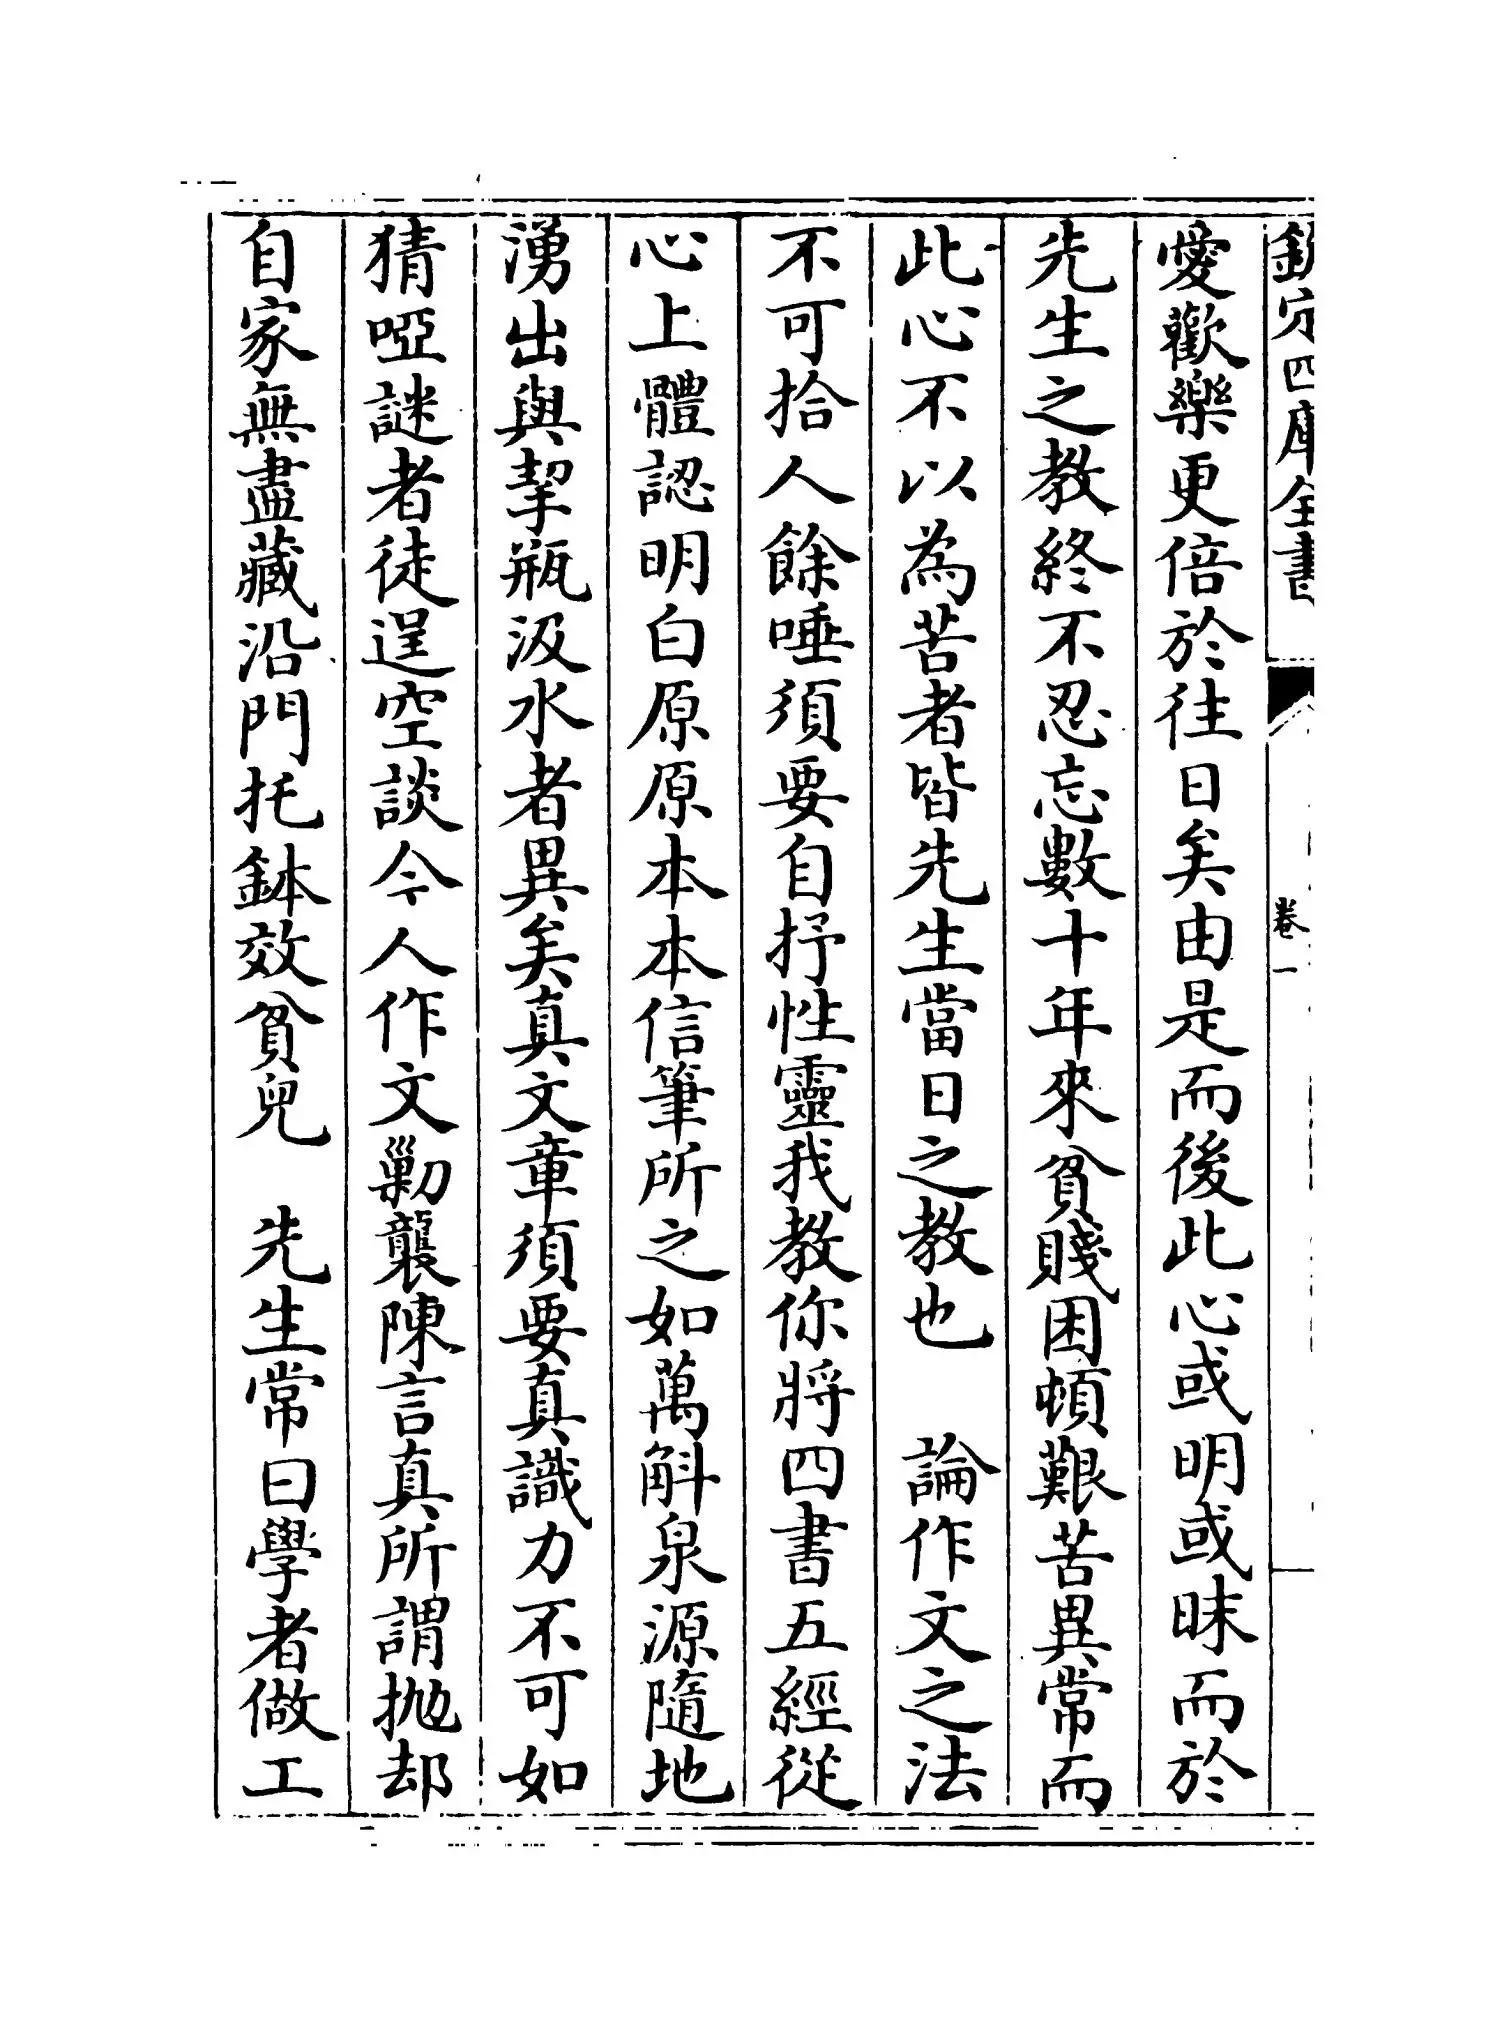 欽定四庫全書
卷一
愛歡樂更倍於往日矣由是而後此心或明或昧而於
先生之教終不忍忘數十年來貧賤困頓艱苦異常而
此心不以為苦者皆先生當日之教也　論作文之法
不可拾人餘唾須要自抒性靈我教你將四書五經從
心上體認明白原原本本信筆所之如萬斛泉源隨地
湧出與挈瓶汲水者異矣真文章須要真識力不可如
猜啞謎者徒逞空談今人作文勦襲陳言真所謂拋却
自家無盡藏沿門托鉢效貧兒　先生常曰學者做工